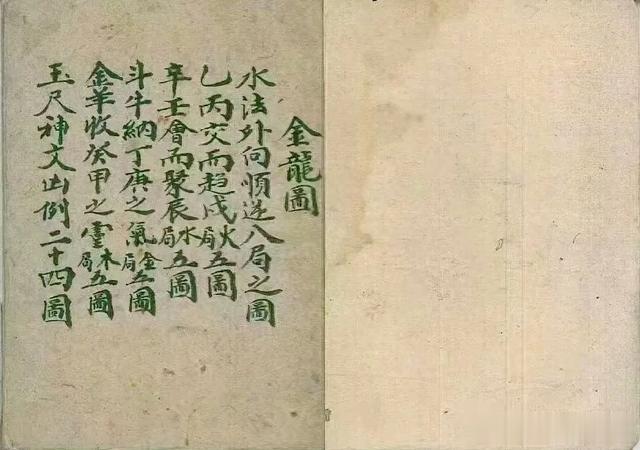 金龍圖
水法外向順逆八局之圖
乙丙交而趨戌火局五圖
辛壬會而聚辰水局五圖
斗牛納丁庚之氣金局五圖
金羊收癸甲之靈木局五圖
玉尺神文凶例二十四圖